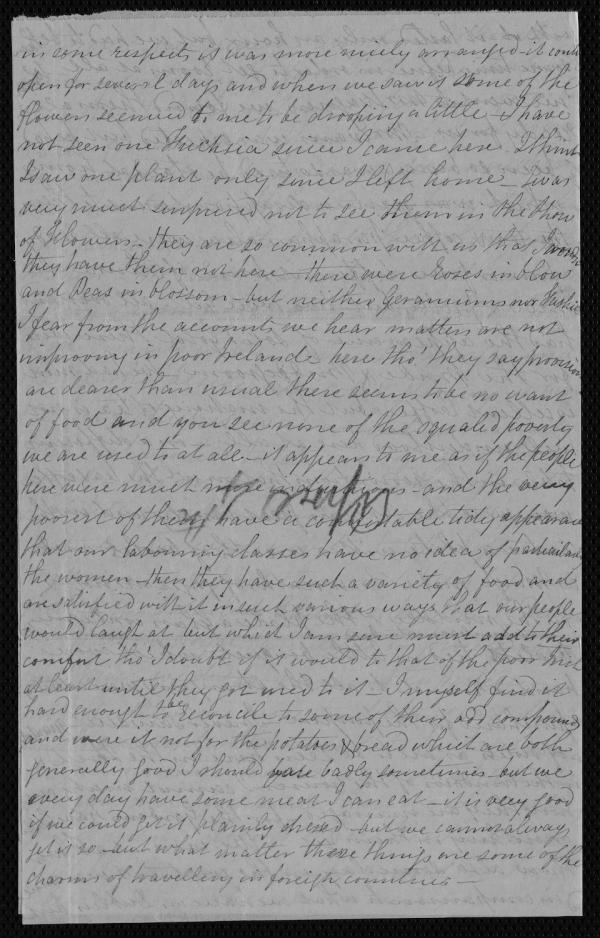 in some respects it was more nicely arranged - it was
open for several days and when we saw it some of the
flowers seemed to me to be drooping a little - I have
not seen one Fuchsia since I came here I think
I saw one plant only since I left home - I was
very much surprised not to see them in the Show
of Flowers - they are so common with us that
they have them not here - there were Roses in blow
and Peas in blossom - but neither Geraniums nor Fuchsia
I fear from the accounts we hear matters are not
improving in poor Ireland - here tho' they say provisions
are dearer than usual there seems to be no want
of food and you see none of the squalid poverty
we are used to at all - it appears to me as if the people
here were much more industrious - and the very
poorest of them have a comfortable tidy appearance
that our labouring classes have no idea of particularly
the women - then they have such a variety of food and
are satisfied with it in such various ways that our people
would laugh at but which I am sure must add to their
comfort tho' I doubt if it would to that of the poor Irish
at least until they got used to it - I myself find it
hard enough to be reconciled to some of their odd compounds
and were it not for the potatoes & bread which are both
generally good I should fare badly sometimes - but we
every day have some meat I can eat - it is very good
if we could get it plainly dressed - but we cannot always
get it so - but what matter these things are some of the
charms of travelling in foreign countries -